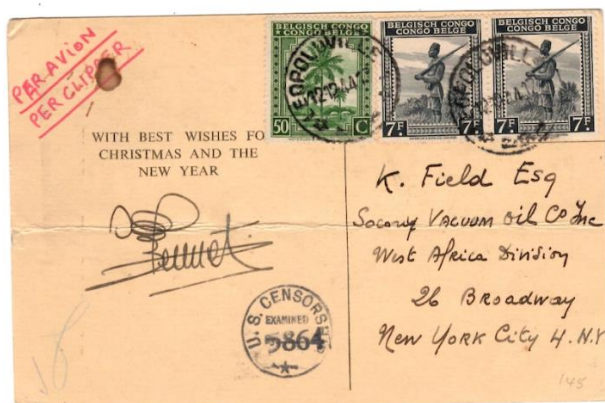 PER AVION
PER CLIPPER
BELGISCH CONGO
CONGO BELGE
50 C
BELGISCH CONGO
CONGO BELGE
7F 7F
BELGISCH CONGO
CONGO BELGE
7F 7F
LEOPOLDVILLE
WITH BEST WISHES FO
CHRISTMAS AND THE
NEW YEAR
K. Field Esq
Socony VACUUM Oil Co Inc
West Africa Division
26 Broadway
New York City 4. N.Y
U.S. CENSORSHIP
EXAMINED
5864
145